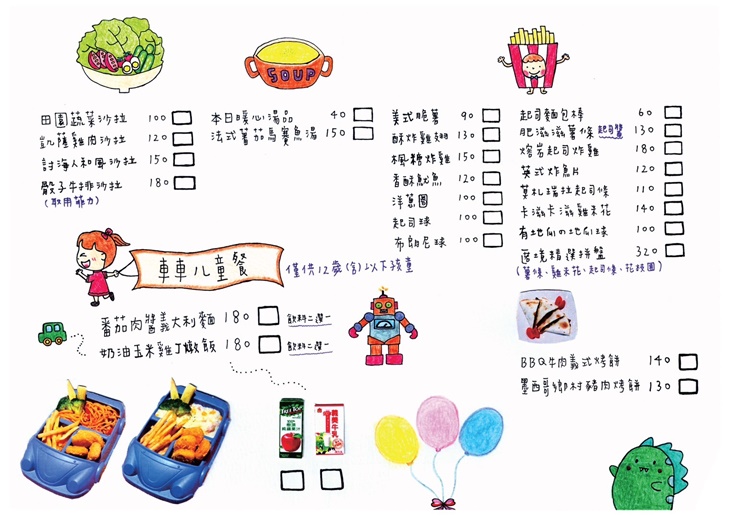 田園蔬菜沙拉 100
凱薩雞肉沙拉 120
討海人和風沙拉 150
骰子牛排沙拉 180
(取用菲力)
SOUP
本日暖心湯品 40
法式蕃茄馬賽魚湯 150
美式脆薯 90
酥炸雞翅 130
楓糖炸雞 150
香酥魷魚 120
洋蔥圈 100
起司球 100
布朗尼球 100
起司麵包棒 60
肥滋滋薯條 起司醬 130
熔岩起司炸雞 180
英式炸魚片 120
莫札瑞拉起司條 110
卡滋卡滋雞米花 140
有地瓜の地瓜球 100
環境精選拼盤 320
(薯條、雞米花、起司條、花枝圈)
轉轉儿童餐
僅供12歲(含)以下孩童
番茄肉醬義大利麵 180 飲料二選一
奶油玉米雞丁燉飯 180 飲料二選一
BBQ牛肉義式烤餅 140
墨西哥鄉村豬肉烤餅 130
TREE TOP
牛乳